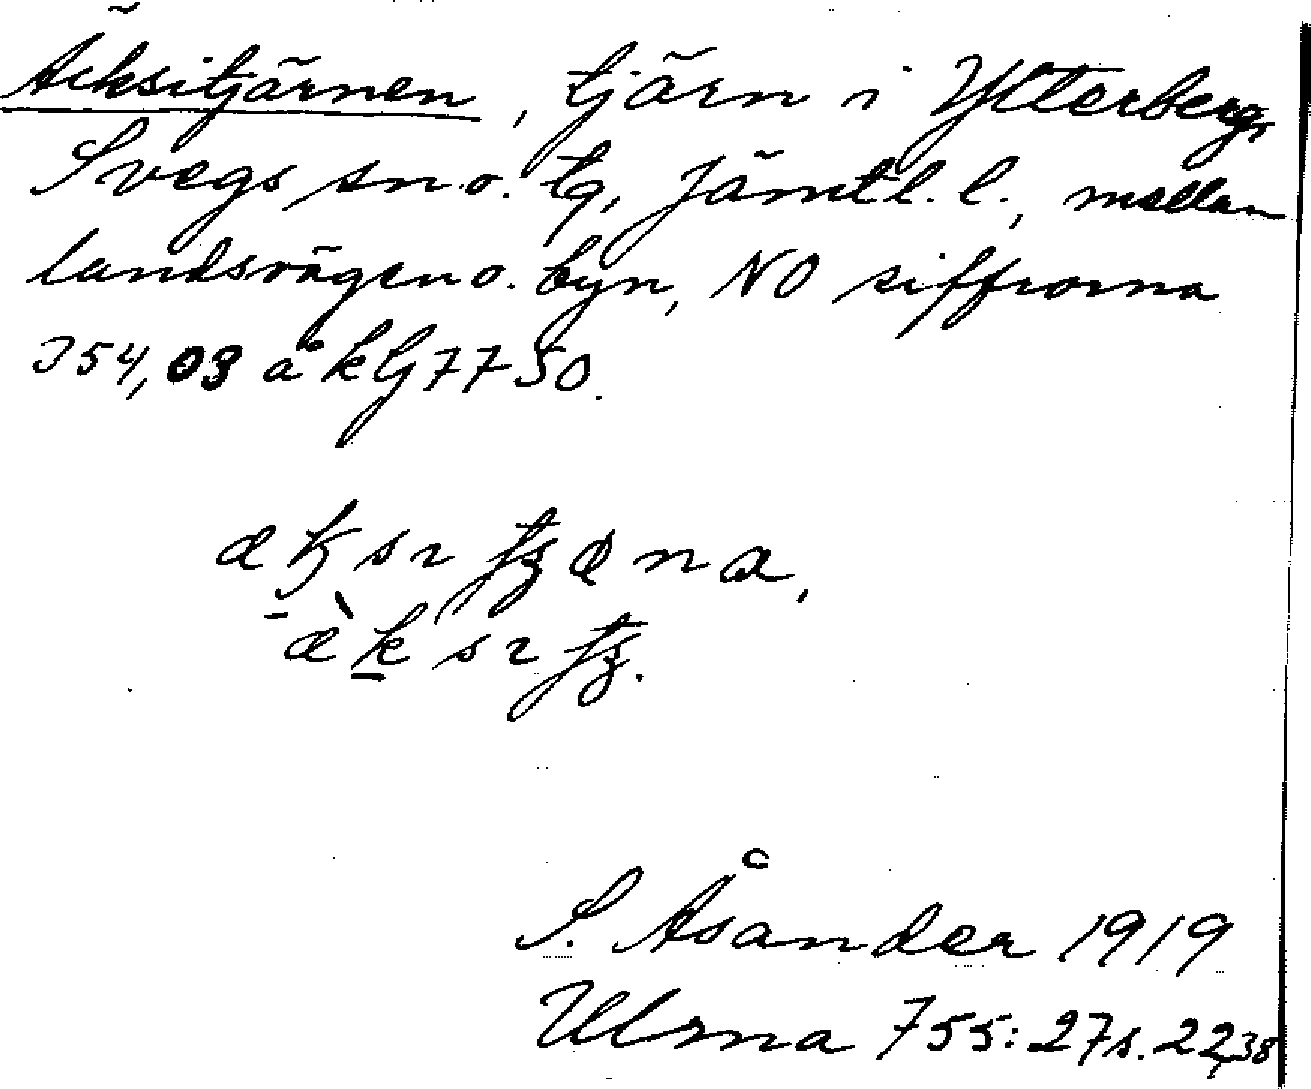 Äcksitjärnen, tjärn i Ytterberg,
Svegs sn o. tg, Jämtl. l., mellan
landsvägen o. byn, NO siffrorna
354,03 å kbl 7750.
S. Åsander 1919
Ulma 755:27 s. 22,38